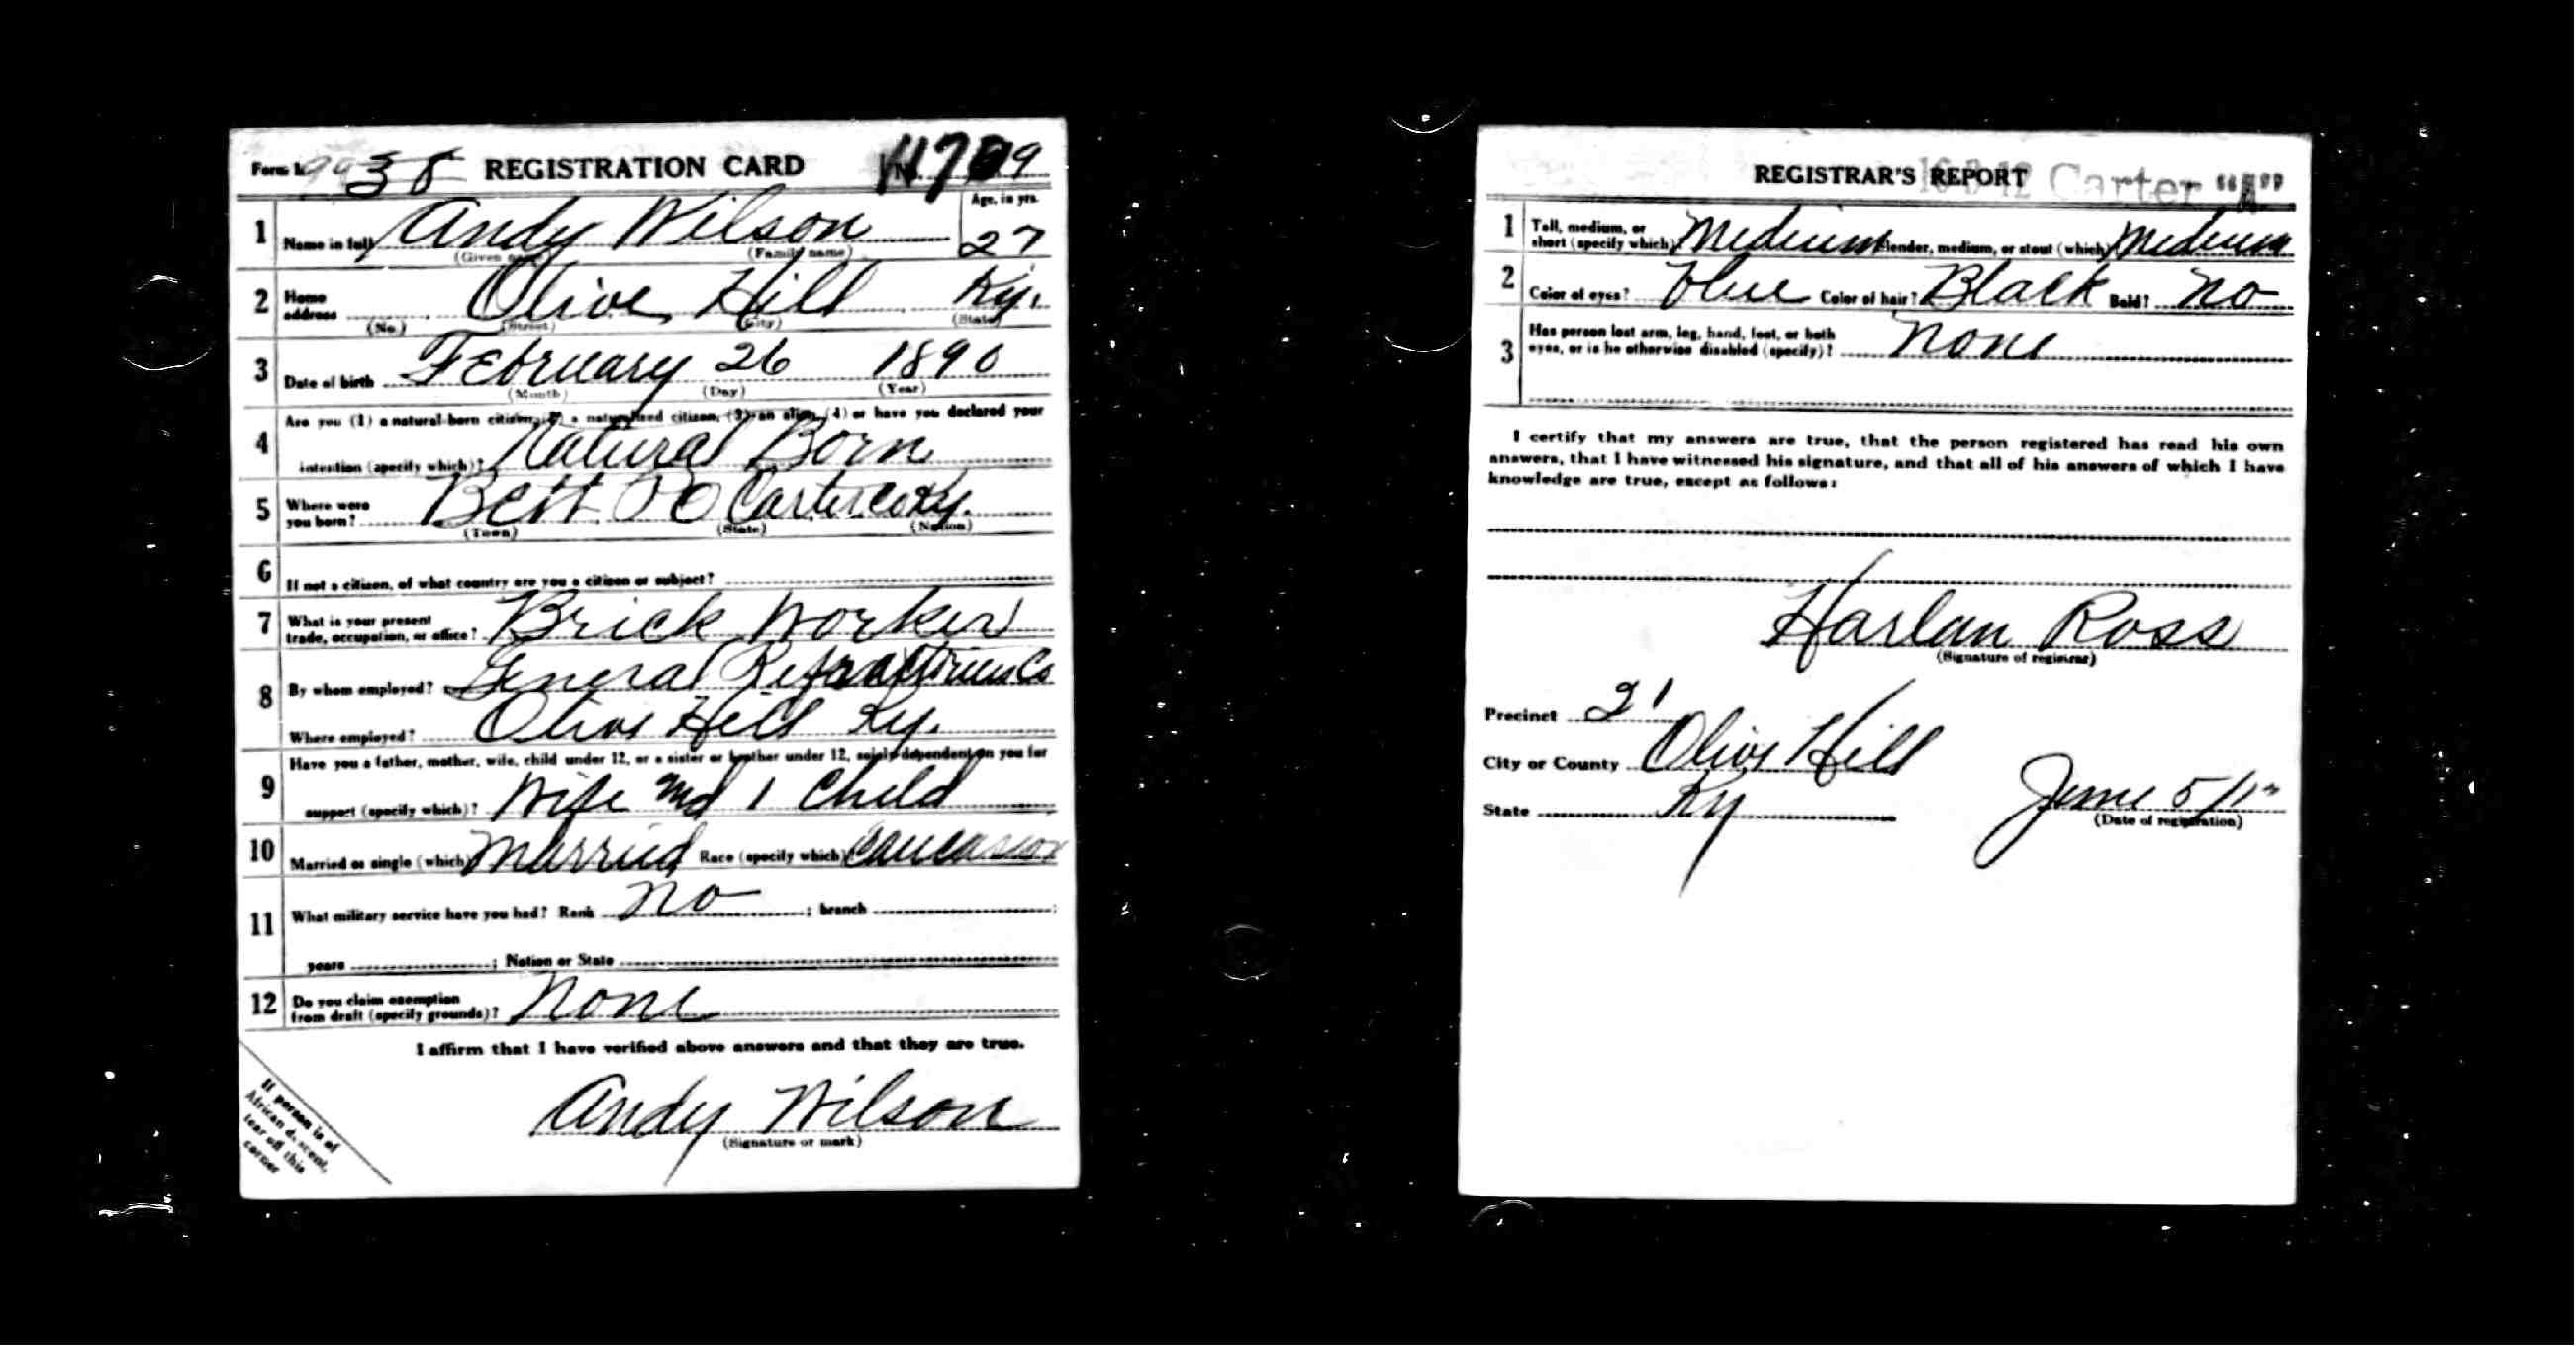 Form 1 38 REGISTRATION CARD No.
Age, in yrs.
1 Name in full Andy Wilson 27
(Given name) (Family name)
2 Home address Olive Hill Ky.
(No.) (Street) (City) (State)
3 Date of birth February 26 1890
(Month) (Day) (Year)
Are you (1) a natural-born citizen, (2) a naturalized citizen, (3) an alien, (4) or have you declared your
4 intention (specify which)? Natural Born
5 Where were you born? Bett P O Carter Co Ky.
(Town) (State) (Nation)
6 If not a citizen, of what country are you a citizen or subject?
7 What is your present trade, occupation, or office? Brick Worker
8 By whom employed? General Refractories Co
Where employed? Olive Hill Ky.
Have you a father, mother, wife, child under 12, or a sister or brother under 12, solely dependent on you for
9 support (specify which)? Wife and 1 Child
10 Married or single (which) Married Race (specify which)? Caucasian
11 What military service have you had? Rank No ; branch ;
years ; Nation or State
12 Do you claim exemption from draft (specify grounds)? None
I affirm that I have verified above answers and that they are true.
Andy Wilson
(Signature or mark)
If person is of
African descent,
tear off this
corner
REGISTRAR'S REPORT Carter "A"
1 Tall, medium, or short (specify which)? Medium Slender, medium, or stout (which)? Medium
2 Color of eyes? Blue Color of hair? Black Bald? No
3 Has person lost arm, leg, hand, foot, or both eyes, or is he otherwise disabled (specify)? None
I certify that my answers are true, that the person registered has read his own
answers, that I have witnessed his signature, and that all of his answers of which I have
knowledge are true, except as follows:
Harlan Ross
(Signature of registrar)
Precinct 21
City or County Olive Hill
State Ky June 5/17
(Date of registration)